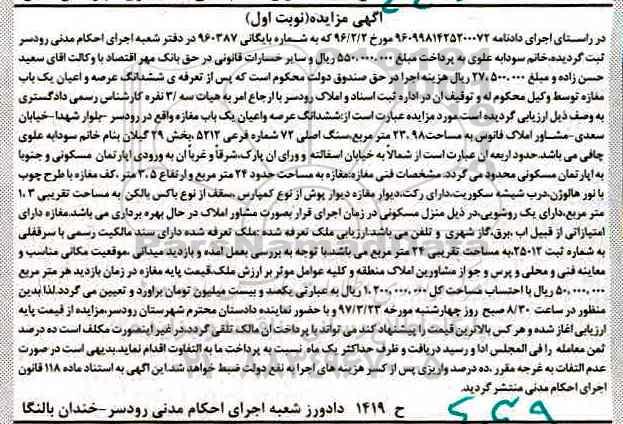 آگهی مزایده(نوبت اول)
در راستای اجرای دادنامه ۹۶۰۹۹۸۱۴۲۵۲۰۰۰۷۲ مورخ ۹۶/۲/۲ که به شماره بایگانی ۹۶۰۳۸۷ در دفتر شعبه اجرای احکام مدنی رودسر
ثبت گردیده،خانم سودابه علوی به پرداخت مبلغ ۵۵۰،۰۰۰،۰۰۰ ریال و سایر خسارات قانونی در حق بانک مهر اقتصاد با وکالت اقای سعید
حسن زاده و مبلغ ۲۷،۵۰۰،۰۰۰ ریال هزینه اجرا در حق صندوق دولت محکوم است که پس از تعرفه ی ششدانگ عرصه و اعیان یک باب
مغازه توسط وکیل محکوم له و توقیف ان در اداره ثبت اسناد و املاک رودسر با ارجاع امر به هیات سه /۳ نفره کارشناس رسمی دادگستری
به وصف ذیل ارزیابی گردیده است.مورد مزایده عبارت است از:ششدانگ عرصه واعیان یک باب مغازه واقع در رودسر -بلوار شهدا-خیابان
سعدی-مشاور املاک فانوس به مساحت۲۳،۹۸ متر مربع،سنگ اصلی ۷۲ شماره فرعی ۵۲۱۲ ،بخش ۲۹ گیلان بنام خانم سودابه علوی
چافی می باشد.حدود اربعه ان عبارت است از شمالاً به خیابان اسفالته و ورای ان پارک،شرقاً و غرباً ان به ورودی اپارتمان مسکونی و جنوبا
به اپارتمان مسکونی محدود می گردد. مشخصات فنی مغازه:مغازه به مساحت حدود ۲۴ متر مربع و ارتفاع ۳،۵ متر ،کف مغازه با طرح چوب
با نور هالوژن،درب شیشه سکوریت،دارای رکت،دیوار مغازه دیوار پوش از نوع کمپارس ،سقف از نوع باکس بالکن به مساحت تقریبی ۱،۳
متر مربع،دارای یک روشویی،در ذیل منزل مسکونی در زمان اجرای قرار بصورت مشاور املاک در حال بهره برداری می باشد.مغازه دارای
امتیازاتی از قبیل اب ،برق،گاز شهری و تلفن می باشد.ارزیابی ملک تعرفه شده :ملک تعرفه شده دارای سند مالکیت رسمی با سرقفلی
به شماره ثبت ۲۵۰۱۲،به مساحت تقریبی ۲۴ متر مربع می باشد.با توجه به بررسی بعمل امده و بازدید میدانی ،موقعیت مکانی مناسب و
معاینه فنی و محلی و پرس و جو از مشاورین املاک منطقه و کلیه عوامل موثر بر ارزش ملک،قیمت پایه مغازه در زمان بازدید هر متر مربع
۵۰،۰۰۰،۰۰۰ ریال با احتساب مساحت کل ۱،۲۰۰،۰۰۰،۰۰۰ ریال به عبارتی یکصد و بیست میلیون تومان براورد و تعیین می گردد.لذا بدین
منظور در ساعت ۸/۳۰ صبح روز چهارشنبه مورخه ۹۷/۳/۲۳ و با حضور نماینده دادستان محترم شهرستان رودسر،مزایده از قیمت پایه
ارزیابی اغاز شده و هر کس بالاترین قیمت را پیشنهاد کند می تواند با پرداخت ان مالک تلقی گردد.در غیر اینصورت مکلف است ده درصد
ثمن معامله را فی المجلس ادا و رسید دریافت و ظرف حداکثر یک ماه نسبت به پرداخت ما به التفاوت اقدام نماید.بدیهی است در صورت
عدم التفات به غرجه مقرر ،ده درصد واریزی پس از کسر هزینه های اجرا به نفع دولت ضبط خواهد شد.این آگهی به استناد ماده ۱۱۸ قانون
اجرای احکام مدنی منتشر گردید.
ح ۱۴۱۹ دادورز شعبه اجرای احکام مدنی رودسر-خندان بالنگا